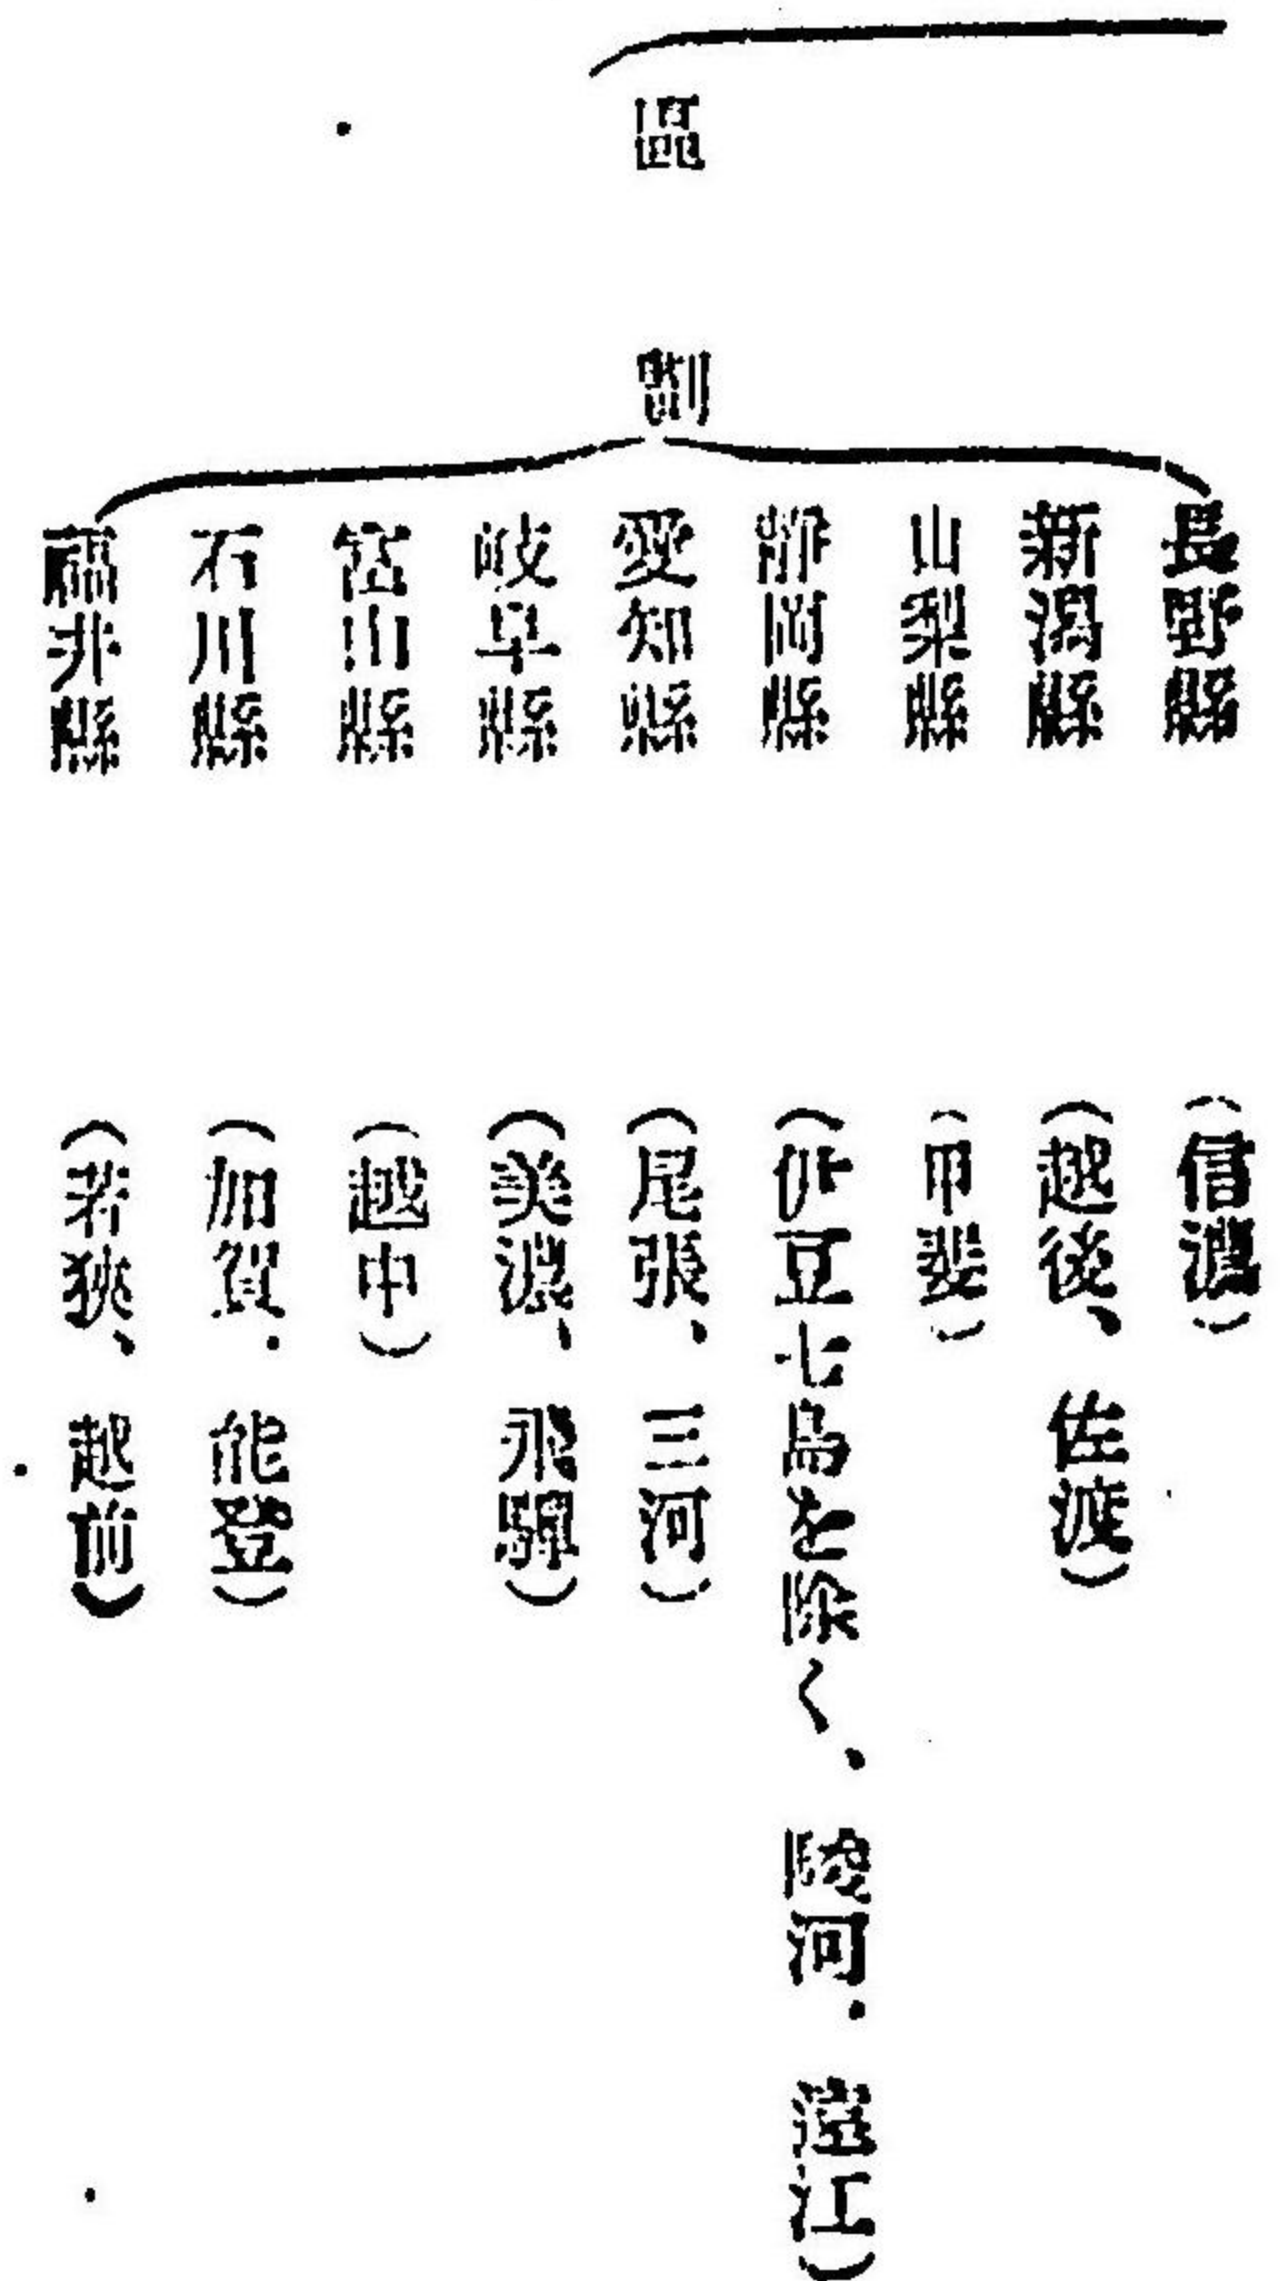 區劃
長野縣 (信濃)
新潟縣 (越後、佐渡)
山梨縣 (甲斐)
靜岡縣 (伊豆七島を除く、駿河、遠江)
愛知縣 (尾張、三河)
岐阜縣 (美濃、飛驒)
富山縣 (越中)
石川縣 (加賀、能登)
福井縣 (若狹、越前)